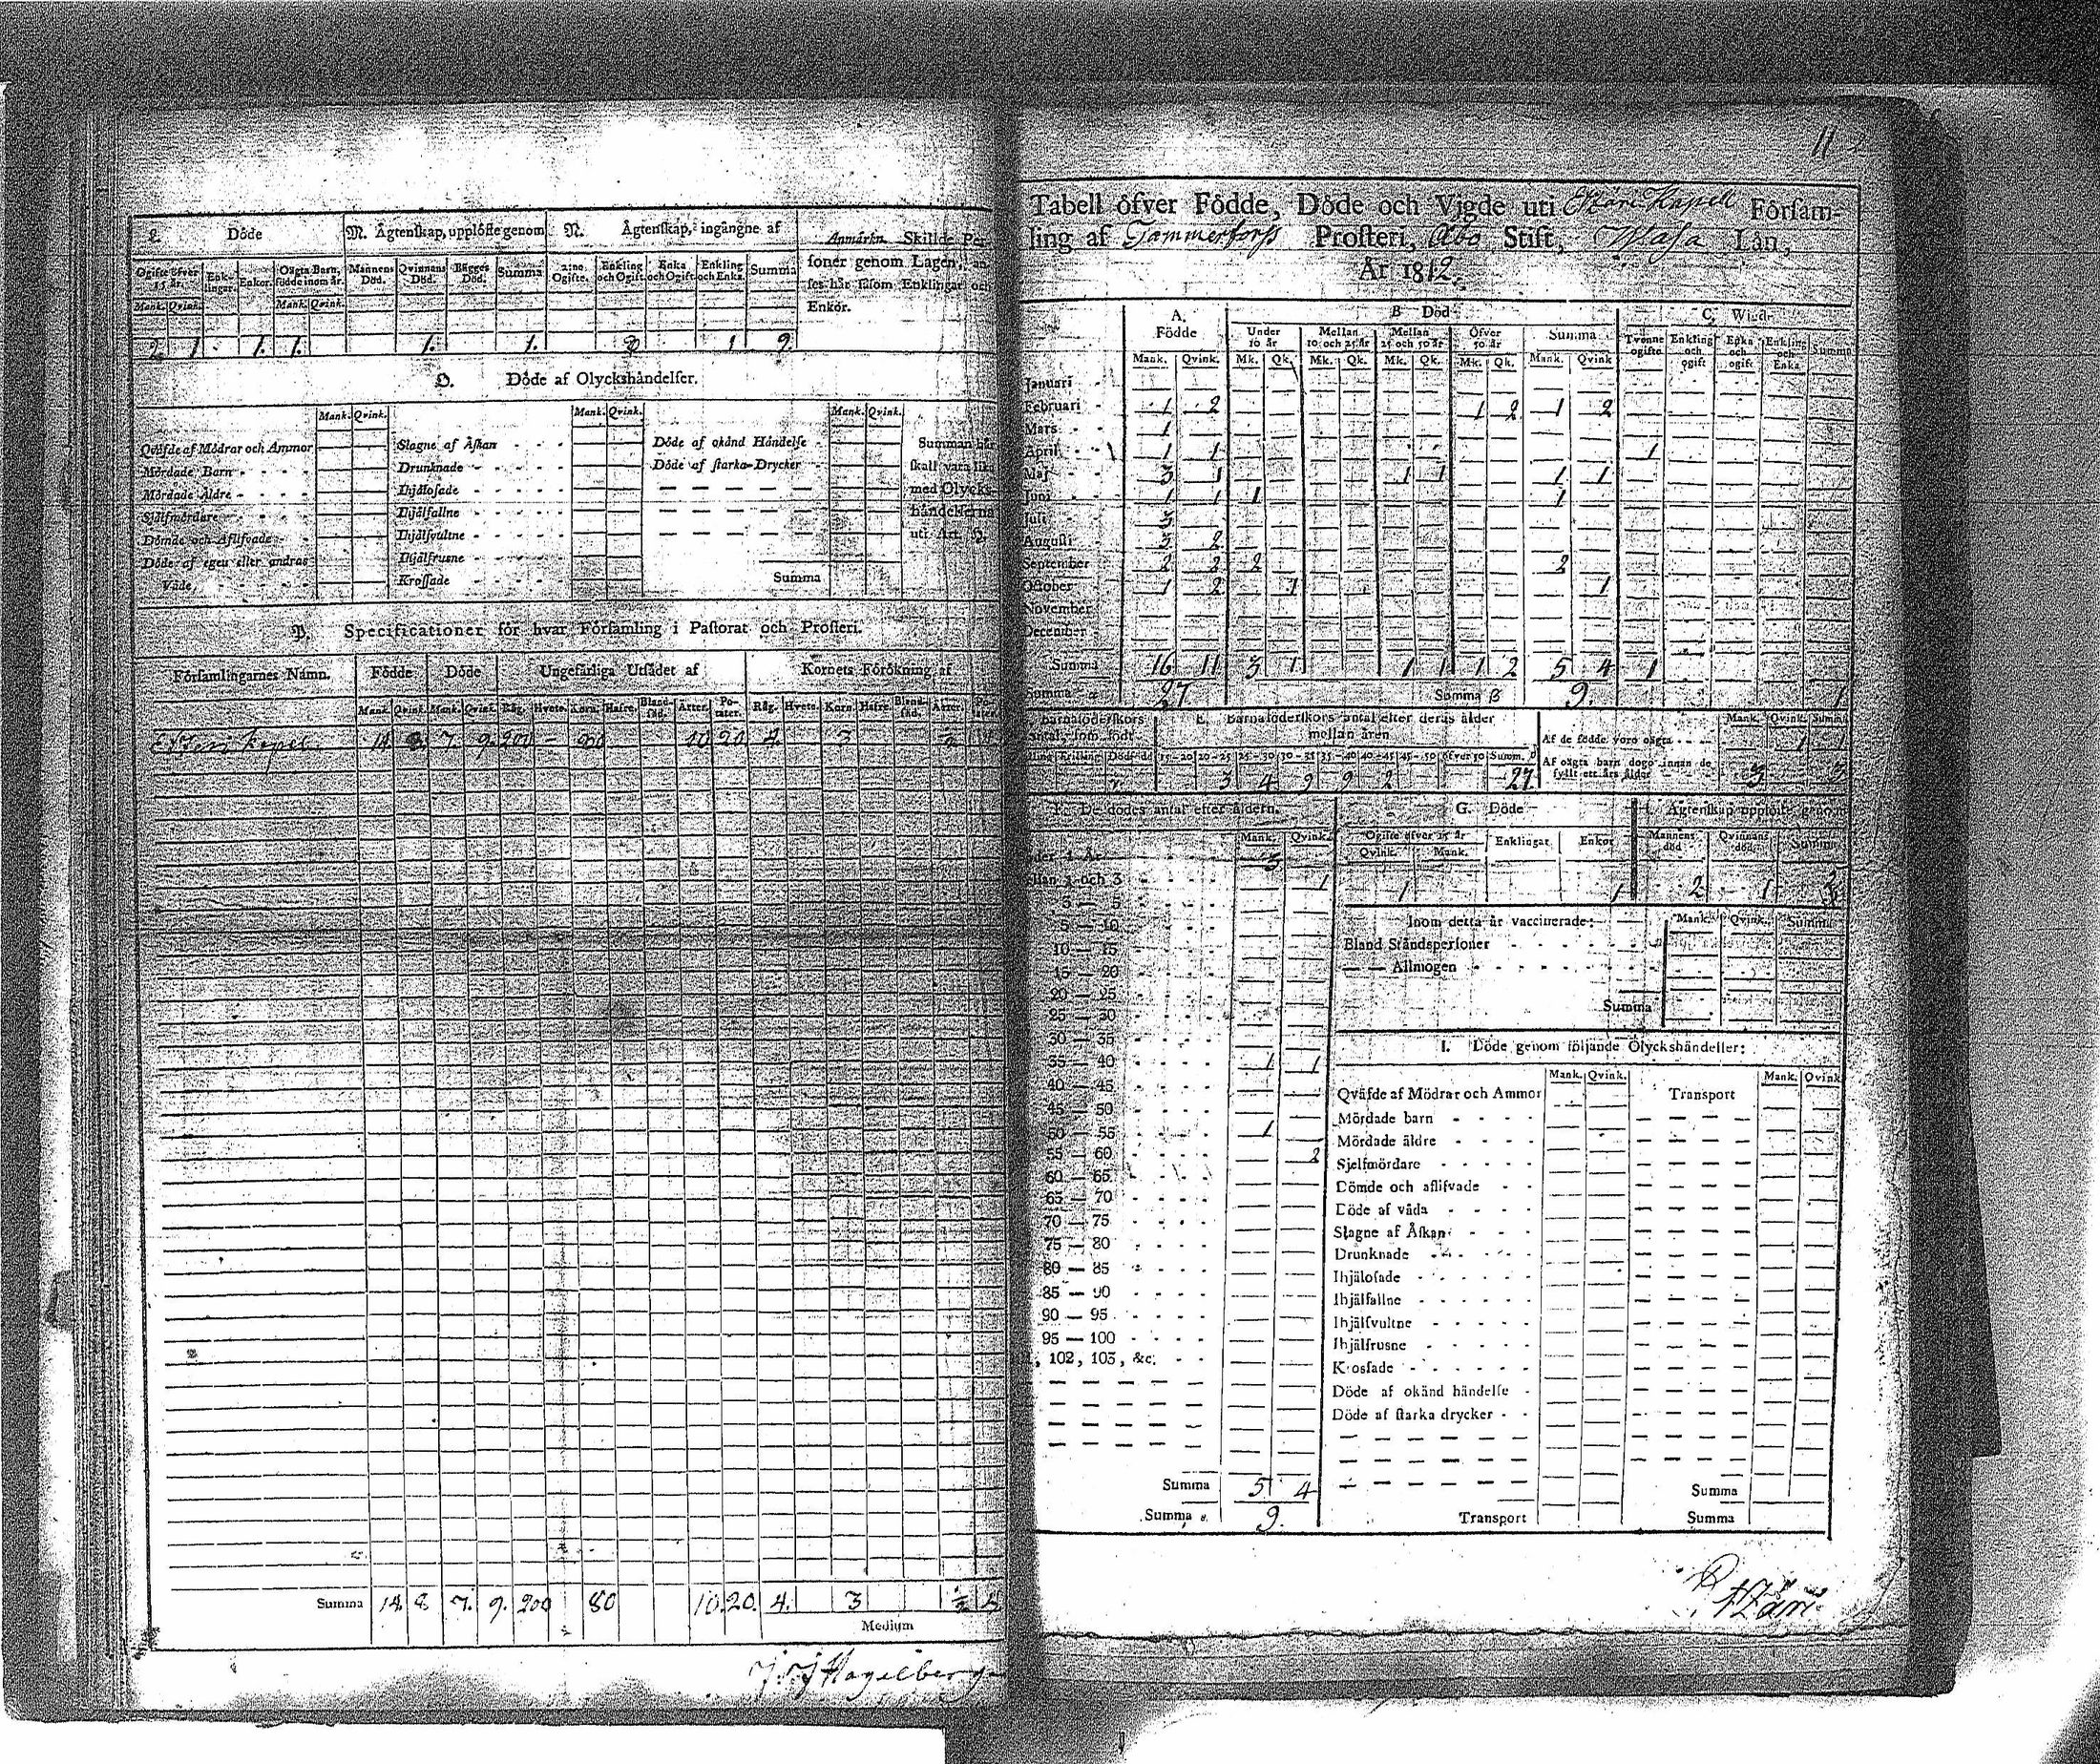 L. Döde
Ogifte öfver 15 år. Enklingar. Enkor. Oägta Barn, födde inom år.
Mank. Qvink. Mank. Qvink.
2 1 1. 1.
M. Ägtenskap, upplöste genom
Männens Död. Qvinnans Död. Bägges Död. Summa
1. 1.
N. Ägtenskap, ingångne af
2:ne Ogifte. Enkling och Ogift. Enka och Ogift. Enkling och Enka. Summa
1 9.
Anmärkn. Skillde Per-
soner genom Lagen, an-
ses här såsom Enklingar och
Enkor.
O. Döde af Olyckshändelser.
Mank. Qvink. Mank. Qvink. Mank. Qvink.
Qväfde af Mödrar och Ammor
Mördade Barn
Mördade Äldre
Sjelfmördare
Dömde och Aflifvade
Döde af egen eller andras
Våde
Slagne af Åskan
Drunknade
Ihjälosade
Ihjälfallne
Ihjälsvultne
Ihjälfrusne
Krossade
Döde af okänd Händelse
Döde af starka Drycker
Summa
Summan här
skall vara lika
med Olycks-
händelserna
uti Art.
P. Specificationer för hvar Församling i Pastorat och Prosteri.
Församlingarnes Namn. Födde Döde Ungefärliga Utsädet af Kornets Förökning af
Mank. Qvink. Mank. Qvink. Råg. Hvete. Korn. Hafre. Bland-säd. Ärter. Po-tater. Råg. Hvete. Korn. Hafre. Bland-säd. Ärter. Po-tater.
Kapel. 14. 8. 7. 9. 200 — 80 10 20. 4. 3
Summa 14. 8 7. 9. 200 80 10. 20. 4. 3 ½
Medium
Hagelberg
11
Tabell öfver Födde, Döde och Vigde uti Kapell Församling
ling af Tammerforss Prosteri, Åbo Stift, Wasa Län,
År 1812.
A. Födde
Mank. Qvink.
B Död
Under 10 år Mellan 10 och 25 år Mellan 25 och 50 år Öfver 50 år Summa
Mk. Qk. Mk. Qk. Mk. Qk. Mk. Qk. Mank. Qvink
C. Wigde
Tvenne ogifte Enkling och ogift Enka och ogift Enkling och Enka Summa
Januari
Februari 1 2 1 2 1 2
Mars 1
April 1 1 1
Maj 3 1 1 1 1 1
Juni 1 1 1 1
Juli 3
Augusti 3 2
September 2 2 2 2
Oktober 1 2 1 1
November
December
Summa 16 11 3 1 1 1 1 2 5 4 1
Summa 27 Summa B 9. 1
Barnaföderskors antal, som födt
E. Barnaföderskors antal efter deras ålder mellan åren
15-20 20-25 25-30 30-35 35-40 40-45 45-50 öfver 50 Summ.
3 4 9 9 2 27.
Mank. Qvink. Summa
Af de födde voro oägta 1 1
Af oägta barn dogo innan de fyllt ett års ålder 3 3
F. De dödes antal efter åldern.
Mank. Qvink.
1 År 3
1 och 3 1
3 — 5
5 — 10
10 — 15
15 — 20
20 — 25
25 — 30
30 — 35
35 — 40 1 1
40 — 45
45 — 50
50 — 55 1
55 — 60 2
60 — 65
65 — 70
70 — 75
75 — 80
80 — 85
85 — 90
90 — 95
95 — 100
, 102, 103, &c.
Summa 5 4
Summa 9.
G. Döde
Ogifte öfver 15 år Enklingar Enkor
Qvink. Mank.
1 1
Ägtenskap upplöste genom
Mannens död Qvinnans död. Summa
2 1
Inom detta år vaccinerade: Mank. Qvink. Summa
Bland Ståndspersoner
— — Allmogen
Summa
I. Döde genom följande Olyckshändelser:
Mank. Qvink. Mank. Qvink
Qväfde af Mödrar och Ammor Transport
Mördade barn
Mördade äldre
Sjelfmördare
Dömde och aflifvade
Döde af våda
Slagne af Åskan
Drunknade
Ihjälosade
Ihjälfallne
Ihjälsvultne
Ihjälfrusne
Krossade
Döde af okänd händelse
Döde af starka drycker
Summa
Transport Summa